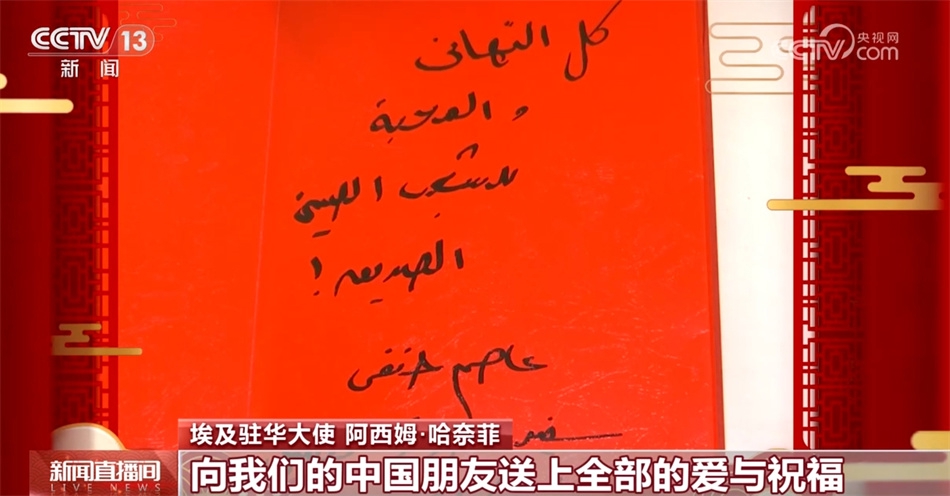 CCTV 13
新闻
CCTV 央视网
com
كل التهاني
والمحبة
للشعب الصيني
الصديق!
عاصم حنفي
埃及驻华大使 阿西姆·哈奈菲
新闻直播间
LIVE NEWS
向我们的中国朋友送上全部的爱与祝福